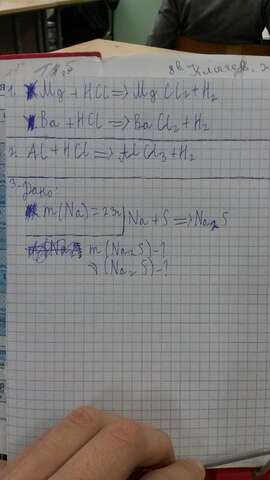 8в Ключев. 2
1. Mg + HCl => MgCl2 + H2
Ba + HCl => BaCl2 + H2
2. Al + HCl => AlCl3 + H2
3. Дано:
m(Na) = 23г Na + S => Na2S
m(Na2S) - ?
ν(Na2S) - ?